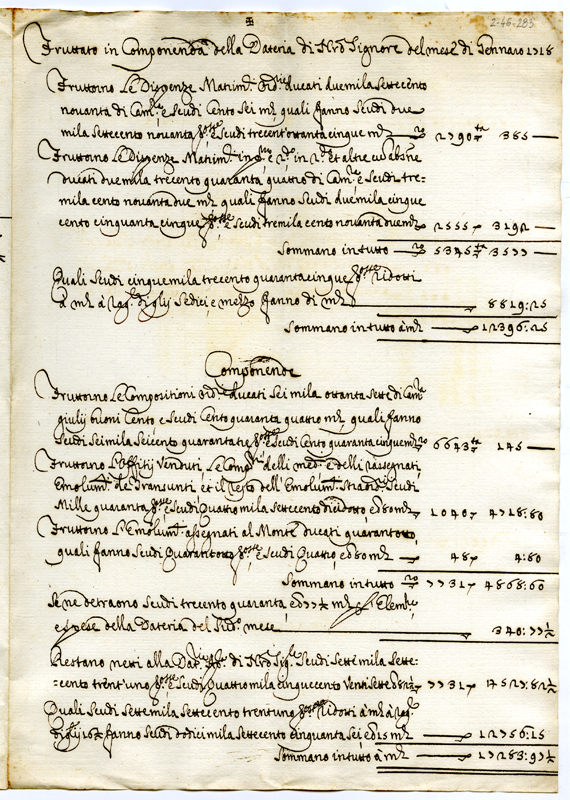 2-46-285
Fruttato in Componenda della Dateria di N̄ro Signore del mese di Gennaro 1718
Fruttorno Le Dispenze Matim: ord:rie ducati duemila settecento
novanta di Cam:ra e scudi Cento sei m:ta quali fanno scudi due
mila settecento novanta e scudi trecent'ottanta cinque m:ta 2790 385
Fruttorno Le Dispenze Matim: in et altre
ducati duemila trecento quaranta quattro di Cam:ra e scudi tre=
mila cento novanta due m:ta quali fanno scudi duemila cinque
cento cinquanta cinque e scudi tremila cento novantadue m:ta 2555 3192
Sommano in tutto 5345 3577
Quali scudi cinquemila trecento quarantacinque ridotti
à m:ta à rag: di giulij sedici e mezzo fanno di m:ta 8819:25
Sommano in tutto à m:ta 12396:25
Componende
Fruttorno Le Compositioni ord: ducati seimila ottanta sette di Cam:ra
giulij buoni Cento e scudi Cento quaranta quattro m:ta quali fanno
scudi seimila seicento quarantatre e scudi Cento quaranta cinque m:ta 6643 145
Fruttorno L'offitij Venduti, Le Comp: delli med: e delli rassegnati
Emolum: de Transunti et il resto dell'Emolum: straord: scudi
Mille quaranta e scudi Quattro mila settecento dicidotto e 80 m:ta 1040 4718:80
Fruttorno L'Emolum: assegnati al Monte ducati quarantotto,
quali fanno scudi Quarantotto e scudi Quattro, e 80 m:ta 48 4:80
Sommano in tutto 7731 4868:60
Se ne detraono scudi trecento quaranta e 77½ m:ta p Elem:
e spese della Dateria del sud:o mese 340:77½
Restano netti alla Dat: di N̄ro Sig:re scudi settemila sette=
=cento trent'uno e scudi Quattromila cinquecento Ventisette e 82½ 7731 4527:82½
Quali scudi settemila settecento trentuno ridotti à m:ta à rag:
di giulij 16½ fanno scudi dodicimila settecento cinquanta sei e 15 m:ta 12756:15
Sommano in tutto à m:ta 17283:97½